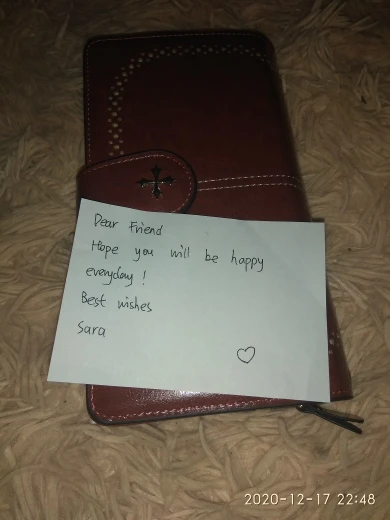 Dear Friend
Hope you will be happy
everyday !
Best wishes
Sara
2020-12-17 22:48